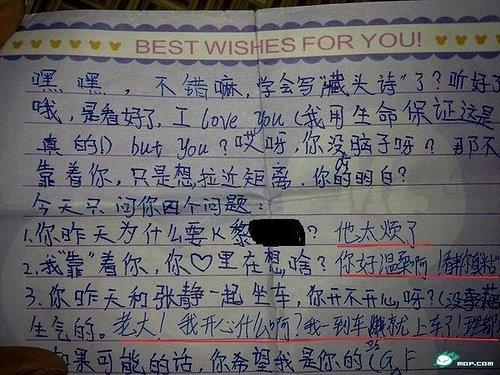 BEST WISHES FOR YOU!
嘿嘿，不错嘛，学会写"藏头诗"了？听好了
哦，是看好了，I love you（我用生命保证这是
真的！）but you？哎呀，你没脑子呀？那不
靠着你，只是想拉近距离，你的明白？
今天只问你四个问题：
1.你昨天为什么要K黎？他太烦了
2.我"靠"着你，你♡里在想啥？你好温柔啊！
3.你昨天和张静一起坐车，你开不开心呀？（没事
生气的。老大！我开心什么啊？我一到车就上车了！
如果可能的话，你希望我是你的（G F
MOP.COM